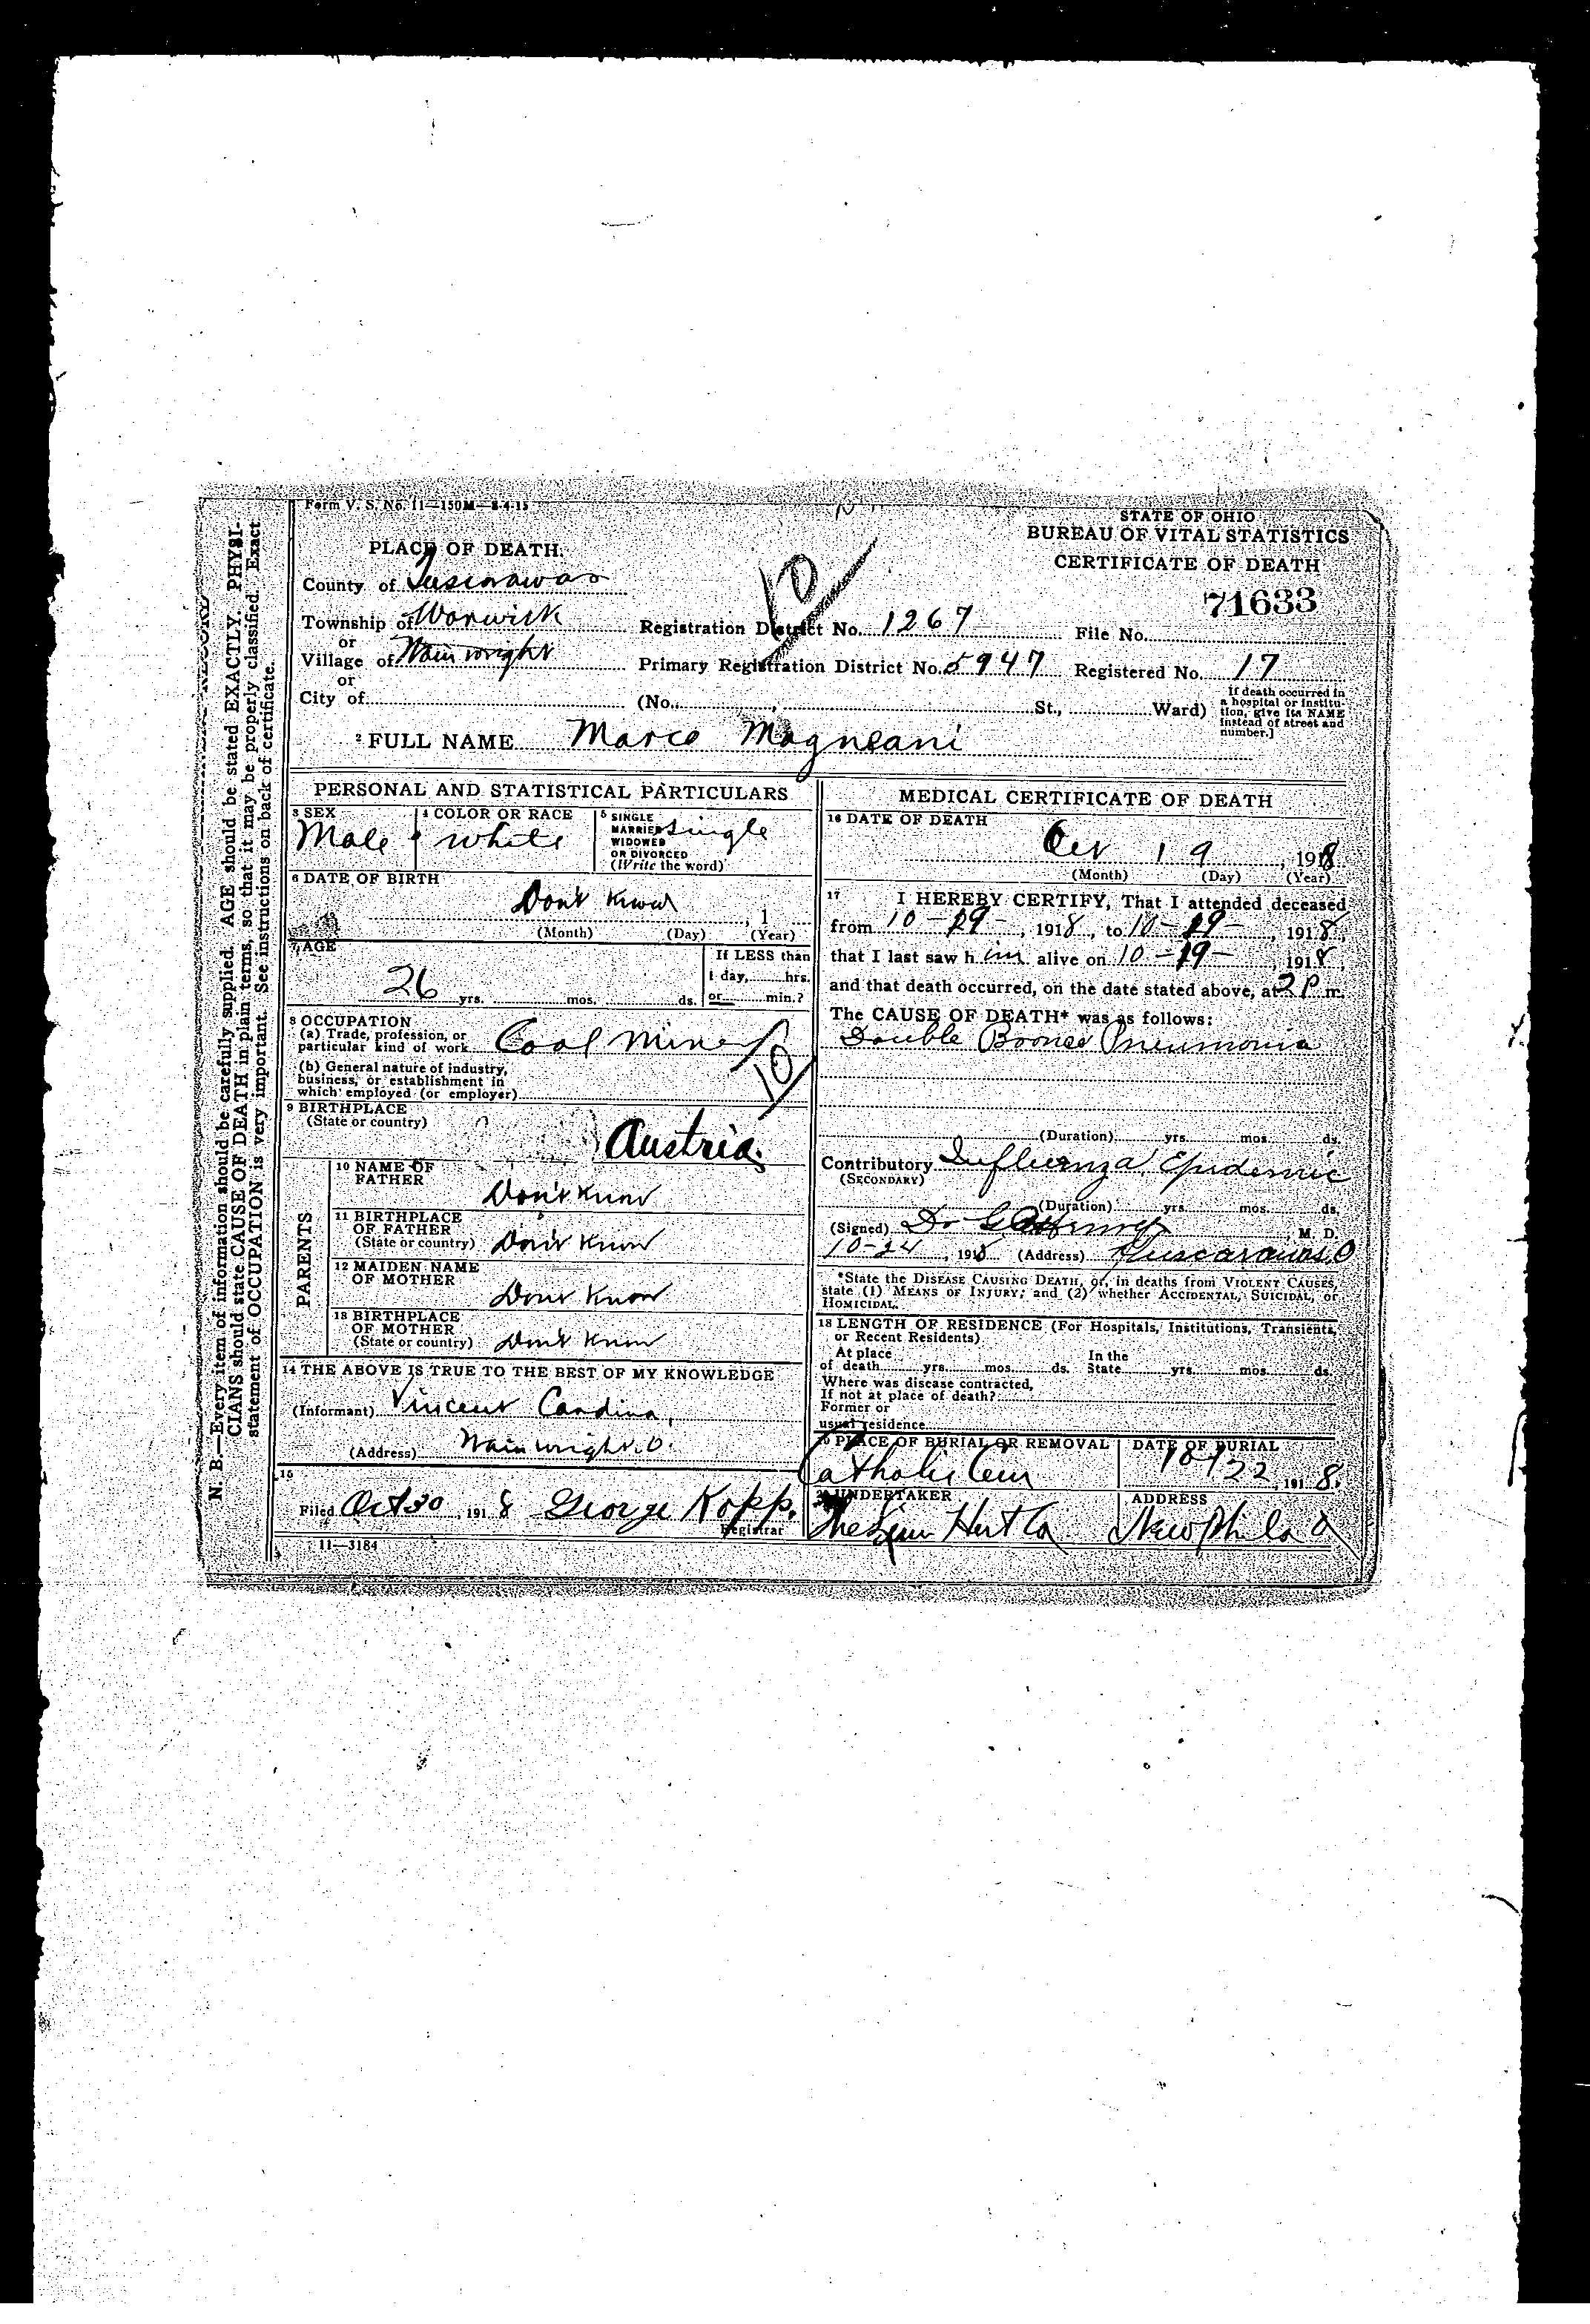 Form V. S. No. 11—150M—8-4-15
STATE OF OHIO
BUREAU OF VITAL STATISTICS
CERTIFICATE OF DEATH
71633
PLACE OF DEATH.
County of Tuscarawas
Township of Warwick
or
Village of Wainwright
or
City of
Registration District No. 1267
File No.
Primary Registration District No. 5947 Registered No. 17
(No. , St., Ward)
If death occurred in a hospital or institution, give its NAME instead of street and number.]
2 FULL NAME Marco Magneani
10
PERSONAL AND STATISTICAL PARTICULARS
3 SEX
Male
4 COLOR OR RACE
white
5 SINGLE
MARRIED
WIDOWED
OR DIVORCED
(Write the word)
Single
6 DATE OF BIRTH
Don't Know , 1
(Month) (Day) (Year)
7 AGE
26 yrs. mos. ds.
If LESS than
1 day, hrs.
or min.?
8 OCCUPATION
(a) Trade, profession, or
particular kind of work Coal Miner
10
(b) General nature of industry,
business, or establishment in
which employed (or employer)
9 BIRTHPLACE
(State or country)
Austria
PARENTS
10 NAME OF
FATHER
Don't Know
11 BIRTHPLACE
OF FATHER
(State or country) Don't Know
12 MAIDEN NAME
OF MOTHER
Don't Know
13 BIRTHPLACE
OF MOTHER
(State or country) Don't Know
14 THE ABOVE IS TRUE TO THE BEST OF MY KNOWLEDGE
(Informant) Vincent Candina,
(Address) Wainwright. O.
15
Filed Oct 30, 1918 George Kopp.
Registrar
11—3184
MEDICAL CERTIFICATE OF DEATH
16 DATE OF DEATH
Oct 19, 1918
(Month) (Day) (Year)
17 I HEREBY CERTIFY, That I attended deceased
from 10-19-, 1918, to 10-19-, 1918,
that I last saw him alive on 10-19-, 1918,
and that death occurred, on the date stated above, at 2 P m.
The CAUSE OF DEATH* was as follows:
Double Bronco Pneumonia
(Duration) yrs. mos. ds.
Contributory Influenza Epidemic
(SECONDARY)
(Duration) yrs. mos. ds.
(Signed) Dr , M. D.
10-24, 1918 (Address) Tuscarawas, O
*State the DISEASE CAUSING DEATH, or, in deaths from VIOLENT CAUSES,
state (1) MEANS OF INJURY; and (2) whether ACCIDENTAL, SUICIDAL, or
HOMICIDAL.
18 LENGTH OF RESIDENCE (For Hospitals, Institutions, Transients,
or Recent Residents)
At place
of death yrs. mos. ds.
In the
State yrs. mos. ds.
Where was disease contracted,
If not at place of death?
Former or
usual residence
PLACE OF BURIAL OR REMOVAL
Catholic Cem
DATE OF BURIAL
10/22, 1918.
UNDERTAKER
The Hurt Co
ADDRESS
New Phila O
N. B.—Every item of information should be carefully supplied. AGE should be stated EXACTLY. PHYSI-
CIANS should state CAUSE OF DEATH in plain terms, so that it may be properly classified. Exact
statement of OCCUPATION is very important. See instructions on back of certificate.